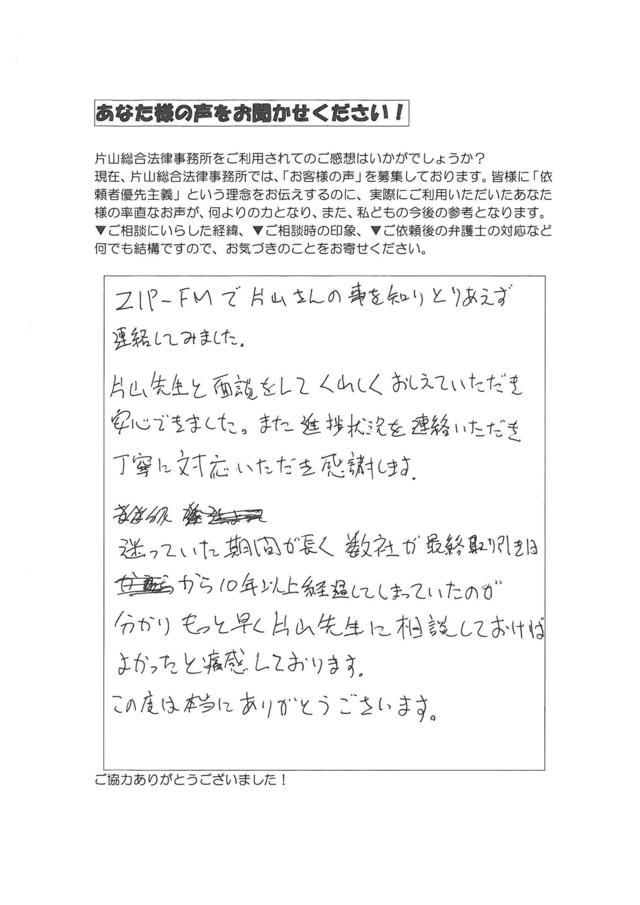 あなた様の声をお聞かせください！
片山総合法律事務所をご利用されてのご感想はいかがでしょうか？
現在、片山総合法律事務所では、「お客様の声」を募集しております。皆様に「依
頼者優先主義」という理念をお伝えするのに、実際にご利用いただいたあなた
様の率直なお声が、何よりの力となり、また、私どもの今後の参考となります。
▼ご相談にいらした経緯、▼ご相談時の印象、▼ご依頼後の弁護士の対応など
何でも結構ですので、お気づきのことをお寄せください。
ZIP-FMで片山さんの事を知りとりあえず
連絡してみました。
片山先生と面談をしてくわしくおしえていただき
安心できました。また進捗状況を連絡いただき
丁寧に対応いただき感謝します。
迷っていた期間が長く数社が最終取り引き日
から10年以上経過してしまっていたのが
分かりもっと早く片山先生に相談しておけば
よかったと痛感しております。
この度は本当にありがとうございます。
ご協力ありがとうございました！